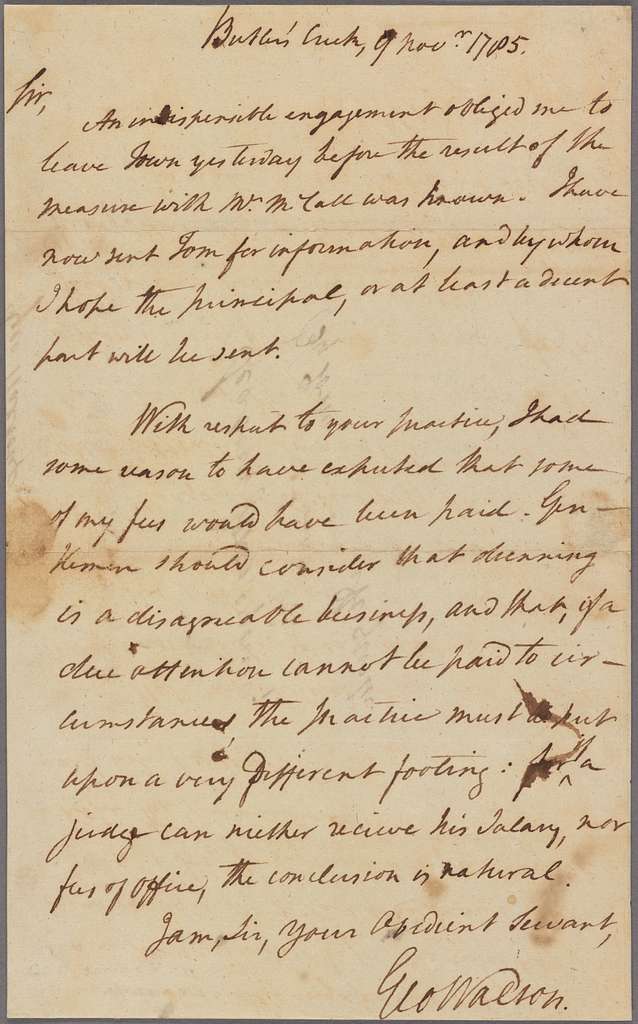 Butler's Creek, 9 Novr. 1785.
Sir,
An indispensible engagement obliged me to
leave Town yesterday before the result of the
measure with Mr. McCall was known. I have
now sent Tom for information, and by whom
I hope the principal, or at least a decent
part will be sent.
With respect to your practice, I had
some reason to have expected that some
of my fees would have been paid. Gen-
tlemen should consider that dunning
is a disagreeable business, and that, if a
due attention cannot be paid to cir-
cumstances, the practice must be put
upon a very different footing: for if a
judge can niether recieve his Salary, nor
fees of office, the conclusion is natural.
I am, Sir, your Obedient Servant,
Geo Walton.